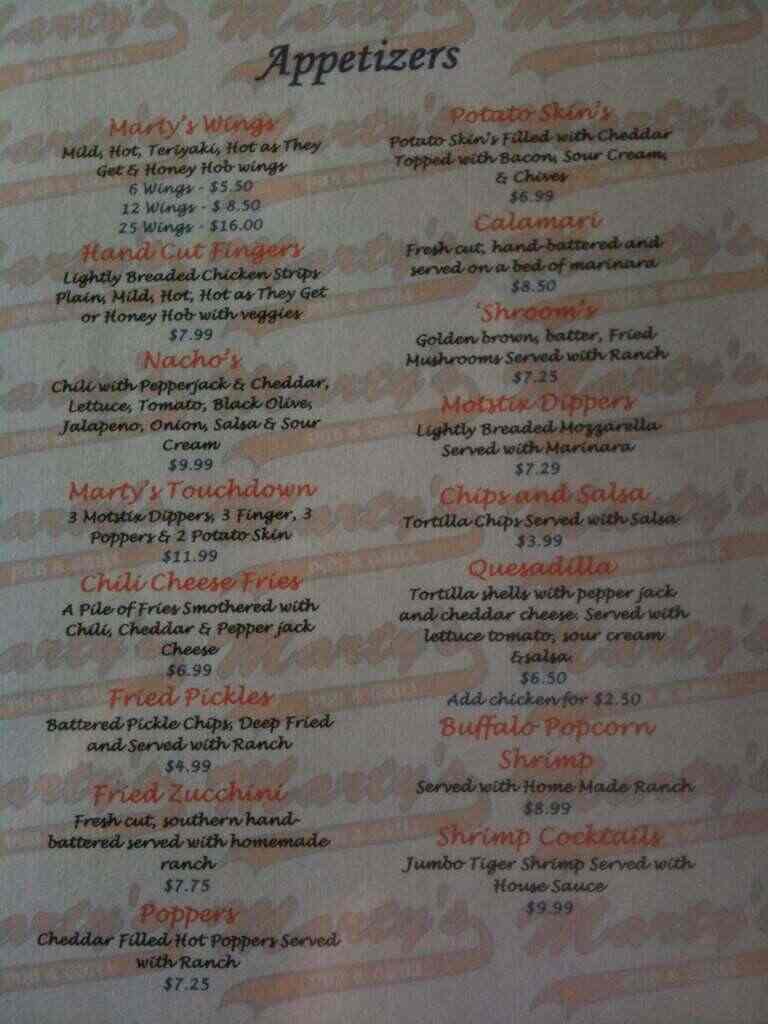 Appetizers
Marty's Wings
Mild, Hot, Teriyaki, Hot as They
Get & Honey Hob wings
6 Wings - $5.50
12 Wings - $ 8.50
25 Wings - $16.00
Hand Cut Fingers
Lightly Breaded Chicken Strips
Plain, Mild, Hot, Hot as They Get
or Honey Hob with veggies
$7.99
Nacho's
Chili with Pepperjack & Cheddar,
Lettuce, Tomato, Black Olive,
Jalapeno, Onion, Salsa & Sour
Cream
$9.99
Marty's Touchdown
3 Motstix Dippers, 3 Finger, 3
Poppers & 2 Potato Skin
$11.99
Chili Cheese Fries
A Pile of Fries Smothered with
Chili, Cheddar & Pepper jack
Cheese
$6.99
Fried Pickles
Battered Pickle Chips, Deep Fried
and Served with Ranch
$4.99
Fried Zucchini
Fresh cut, southern hand-
battered served with homemade
ranch
$7.75
Poppers
Cheddar Filled Hot Poppers Served
with Ranch
$7.25
Potato Skin's
Potato Skin's Filled with Cheddar
Topped with Bacon, Sour Cream,
& Chives
$6.99
Calamari
Fresh cut, hand-battered and
served on a bed of marinara
$8.50
'Shroom's
Golden brown, batter, Fried
Mushrooms Served with Ranch
$7.25
Motstix Dippers
Lightly Breaded Mozzarella
Served with Marinara
$7.29
Chips and Salsa
Tortilla Chips Served with Salsa
$3.99
Quesadilla
Tortilla shells with pepper jack
and cheddar cheese. Served with
lettuce tomato, sour cream
&salsa.
$6.50
Add chicken for $2.50
Buffalo Popcorn
Shrimp
Served with Home Made Ranch
$8.99
Shrimp Cocktails
Jumbo Tiger Shrimp Served with
House Sauce
$9.99